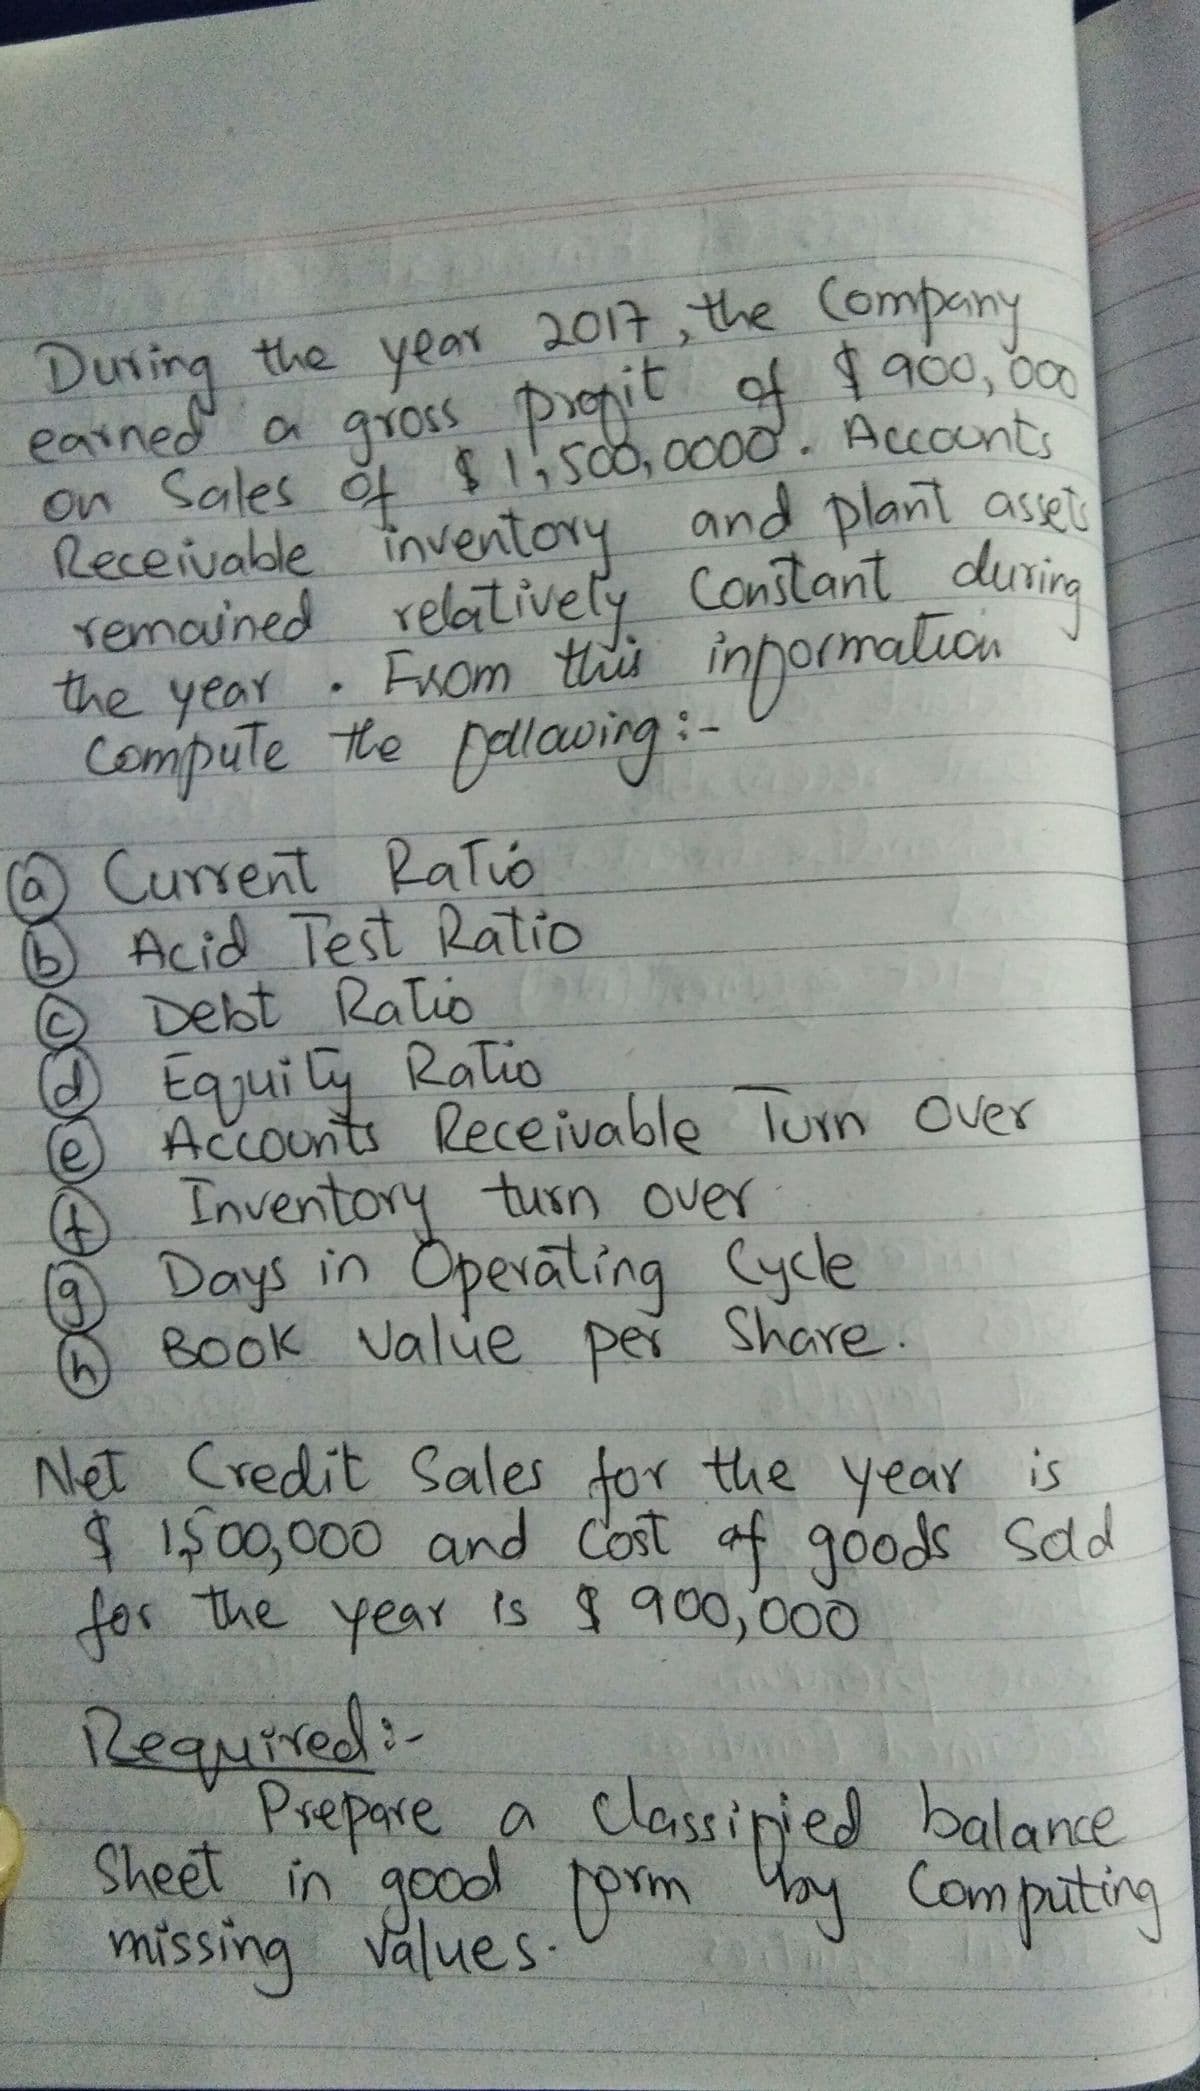 During the year 2017, the Company
earned a gross profit of $ 900,000
on Sales of $ 1,500,0000. Accounts
Receivable inventory and plant assets
remained relatively Constant during
the year. From this information
Compute the following :-
(a) Current Ratio
(b) Acid Test Ratio
(c) Debt Ratio
(d) Equity Ratio
(e) Accounts Receivable Turn Over
(f) Inventory turn over
(g) Days in Operating Cycle
(h) Book Value per Share.
Net Credit Sales for the year is
$ 1,500,000 and Cost of goods Sold
for the year is $ 900,000
Required :-
Prepare a Classified balance
Sheet in good form by Computing
missing values.